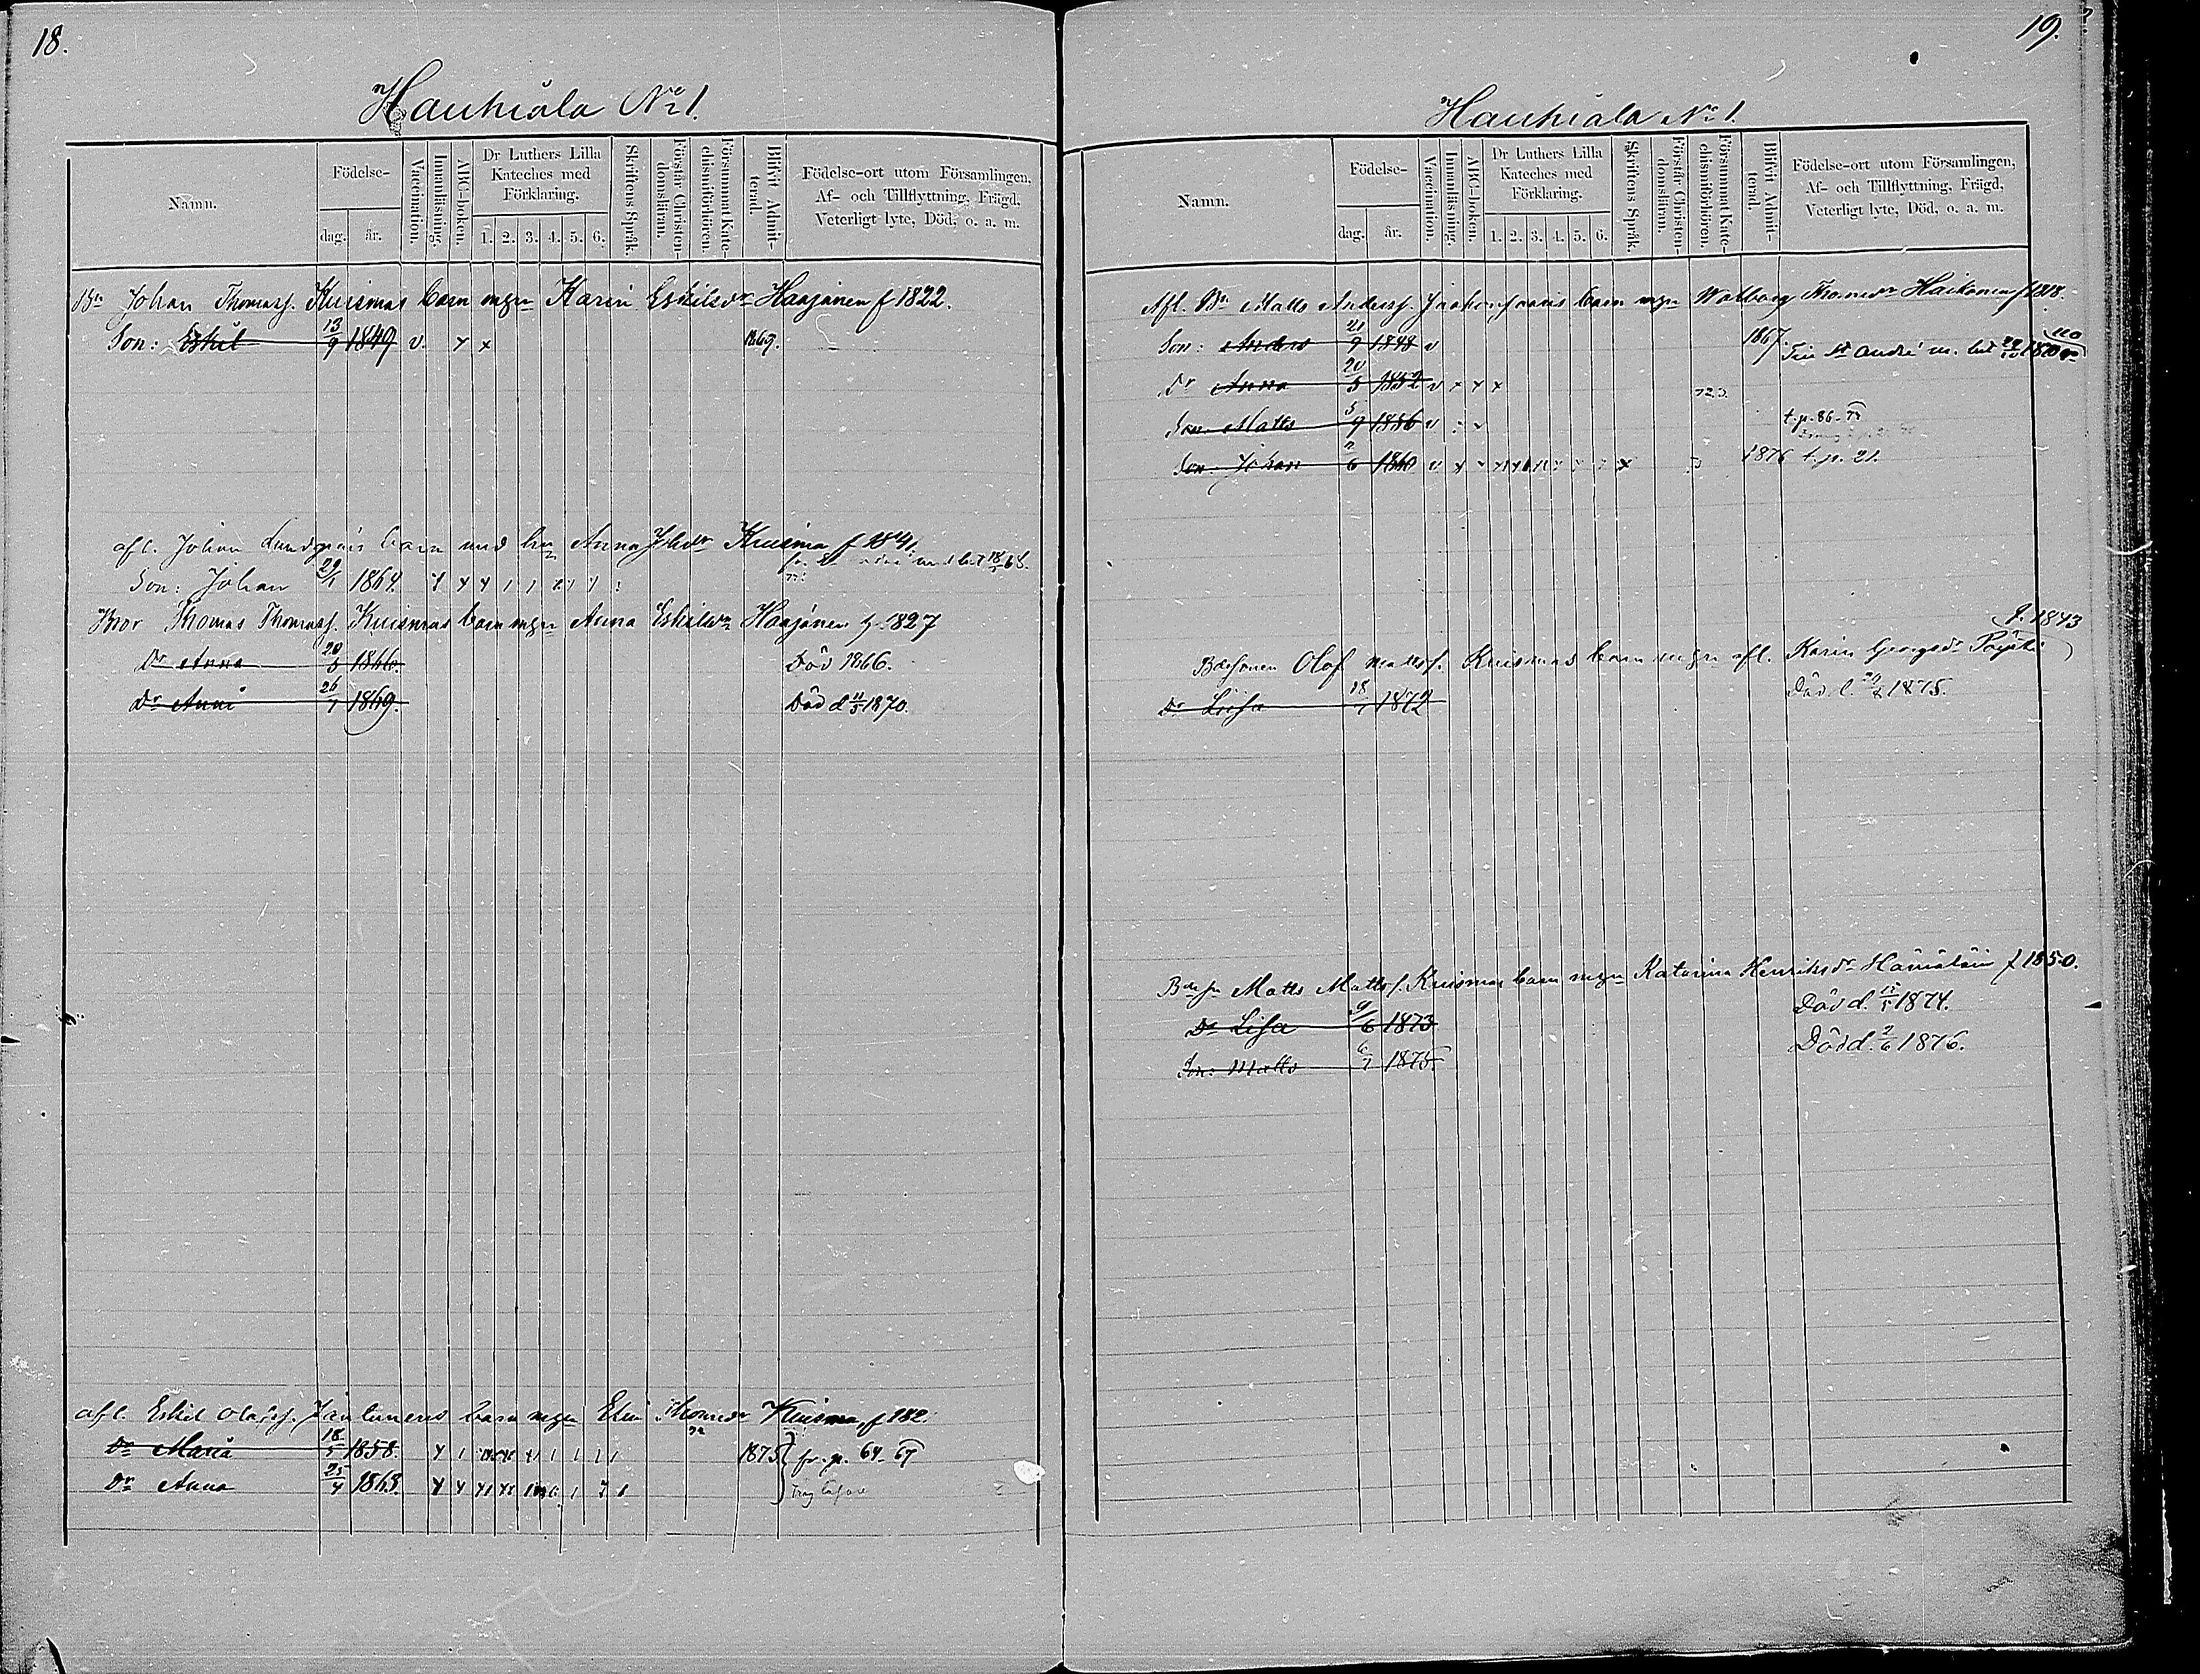 18.
Hauhiala No 1.
Namn.
Födelse-
dag.
år.
Vaccination.
Innanläsning.
ABC-boken.
Dr Luthers Lilla Kateches med Förklaring.
1. 2. 3. 4. 5. 6.
Skriftens Språk.
Förstår Christen-domsläran.
Försummat Kate-chismiförhören.
Blifvit Admit-terad.
Födelse-ort utom Församlingen,
Af- och Tillflyttning, Frägd,
Veterligt lyte, Död, o. a. m.
Bn Johan Thomasf. Kuismas barn mgn Karin Eskilsdr Haajanen f 1822.
Son: Eskil 13/9 1849 v. x x 1869.
afl. Johan barn med hu Anna Kuisma f 1841.
Son: Johan 29/1 1864.
Bror Thomas Thomasf. Kuismas barn mgn Anna Eskilsdr Haajanen f. 1827
Dr Anna 20/5 1866. Död 1866.
Dr Anni 26/7 1869. Död d 11/5 1870.
afl. Eskil Olofsf. Jantunens barn mgn Elin Thomsdr Kuisma, f 182.
Dr Maria 18/5 1858. 1875 fr. p. 64-67
Dr Anna 25/4 1863.
19.
Hauhiala No 1.
Namn.
Födelse-
dag.
år.
Vaccination.
Innanläsning.
ABC-boken.
Dr Luthers Lilla Kateches med Förklaring.
1. 2. 3. 4. 5. 6.
Skriftens Språk.
Förstår Christen-domsläran.
Försummat Kate-chismiförhören.
Blifvit Admit-terad.
Födelse-ort utom Församlingen,
Af- och Tillflyttning, Frägd,
Veterligt lyte, Död, o. a. m.
Afl. Bn Matts Andersf. barn mgn Walborg Thomsdr Haikonen f 1818.
Son: Anders 21/9 1848 v 1867. St André m. bet 1870
Dr Anna 20/5 1852 v x x x
Son: Matts 5/9 1856 v t. p. 86-73
Son: Johan 2/6 1860 v 1876 t. p. 21.
f. 1843
Olof Mattsf. Kuismas barn mgn afl. Karin Georgsdr Pöyste
Dr Liisa 18/7 1872 Död 1875.
Matts Mattsf. Kuismas barn mgn Katarina Henriksdr Hämäläin f 1850.
Dr Lisa 9/6 1873 Död d. 1874.
Son: Matts 6/7 1875. Död d. 2/6 1876.